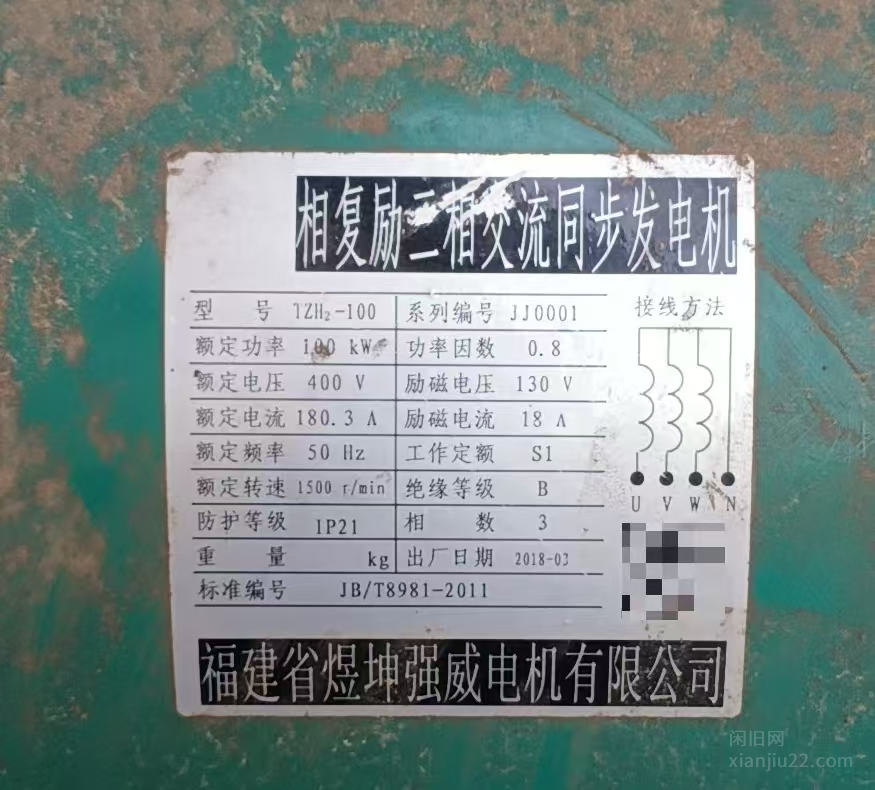 相复励三相交流同步发电机
型 号 TZH₂-100 系列编号 JJ0001
额定功率 100 kW 功率因数 0.8
额定电压 400 V 励磁电压 130 V
额定电流 180.3 A 励磁电流 18 A
额定频率 50 Hz 工作定额 S1
额定转速 1500 r/min 绝缘等级 B
防护等级 IP21 相 数 3
重 量 kg 出厂日期 2018-03
标准编号 JB/T8981-2011
接线方法
U V W N
福建省煜坤强威电机有限公司
闲旧网
xianjiu22.com